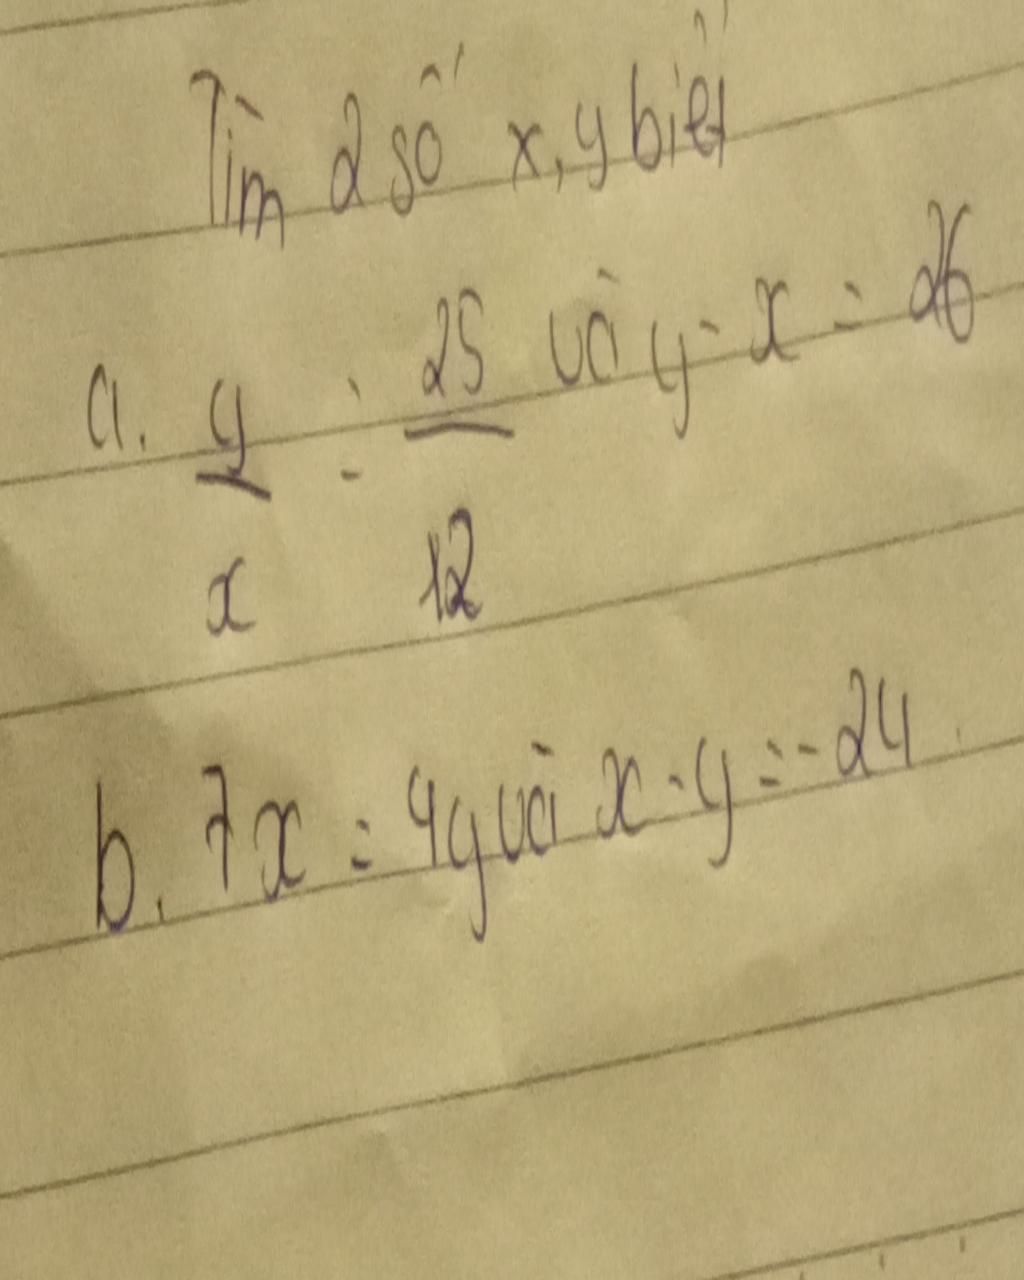 Tìm 2 số x, y biết
a. y/x = 25/12 và y - x = 26
b. 7x = 4y và x - y = -24